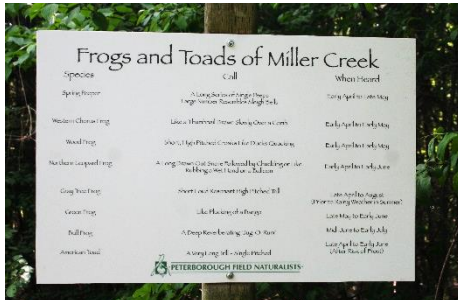 Frogs and Toads of Miller Creek
Species Call When Heard
Spring Peeper A Long Series of Single Peeps Early April to Late May
Large Number Resembles Sleigh Bells
Western Chorus Frog Like a Thumbnail Drawn Slowly Over a Comb Early April to Early May
Wood Frog Short, High Pitched Croaks Like Ducks Quacking Early April to Early May
Northern Leopard Frog A Long Drawn Out Snore Followed by Chuckling or Like Early April to Early June
Rubbing a Wet Hand on a Balloon
Gray Tree Frog Short Loud Resonant High Pitched Trill Late April to August
(Prior to Rainy Weather in Summer)
Green Frog Like Plucking of a Banjo Late May to Early June
Bull Frog A Deep Reverberating "Jug-O-Rum" Mid June to Early July
American Toad A Very Long Trill - Single Pitched Late April to Early June
(After Rise of Frost)
PETERBOROUGH FIELD NATURALISTS